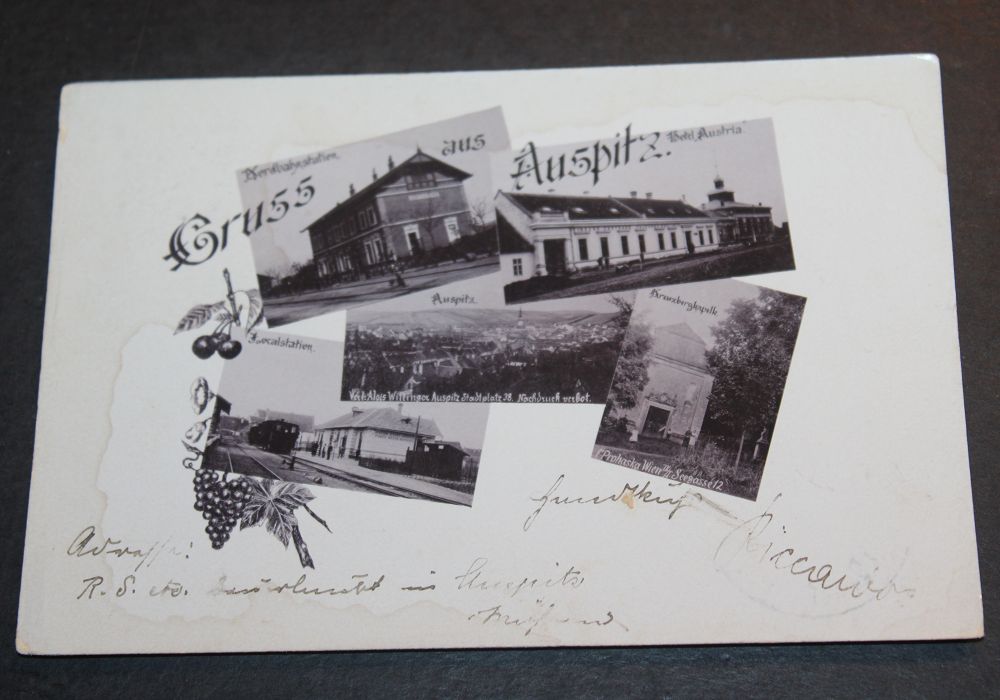 Gruss aus Auspitz.
Nordbahnstation
Hotel Austria
Auspitz
Kreuzbergkapelle
Localstation.
Verl. Alois Wittinger Auspitz Stadtplatz 38. Nachdruck verbot.
C. Prohaska Wien II/1 Seegasse 12
Handkuss
Riccardo
Adresse:
R. S. etc. in Auspitz
Mähren